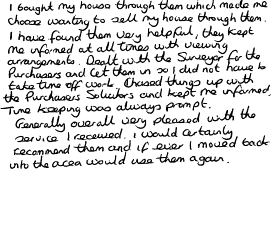 I bought my house through them which made me
choose wanting to sell my house through them.
I have found them very helpful, they kept
me informed at all times with viewing
arrangements. Dealt with the Surveyor for the
Purchasers and let them in so I did not have to
take time off work. Chased things up with
the Purchasers Solicitors and kept me informed,
Time keeping was always prompt.
Generally overall very pleased with the
service I received. I would certainly
recommend them and if ever I moved back
into the area would use them again.